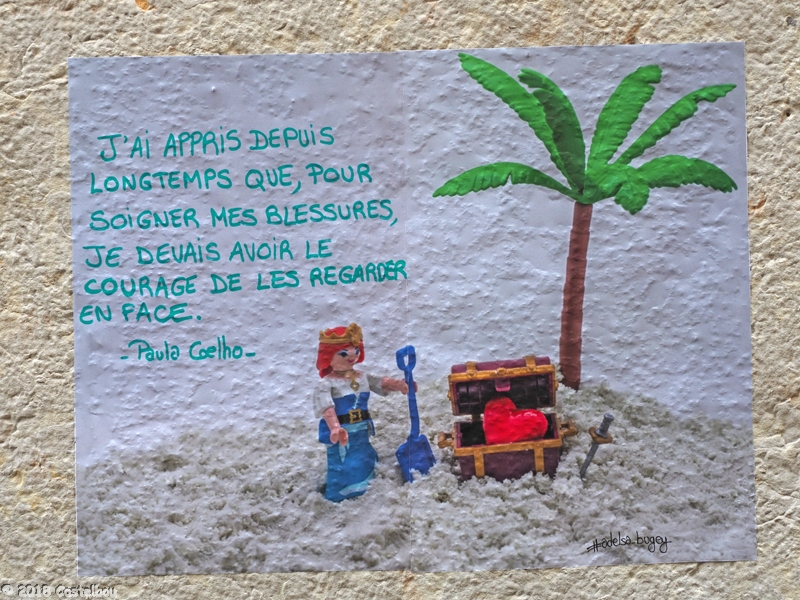 J'AI APPRIS DEPUIS
LONGTEMPS QUE, POUR
SOIGNER MES BLESSURES,
JE DEVAIS AVOIR LE
COURAGE DE LES REGARDER
EN FACE.
- Paula Coelho -
#adelsa_bugey
© 2018 Costelbou